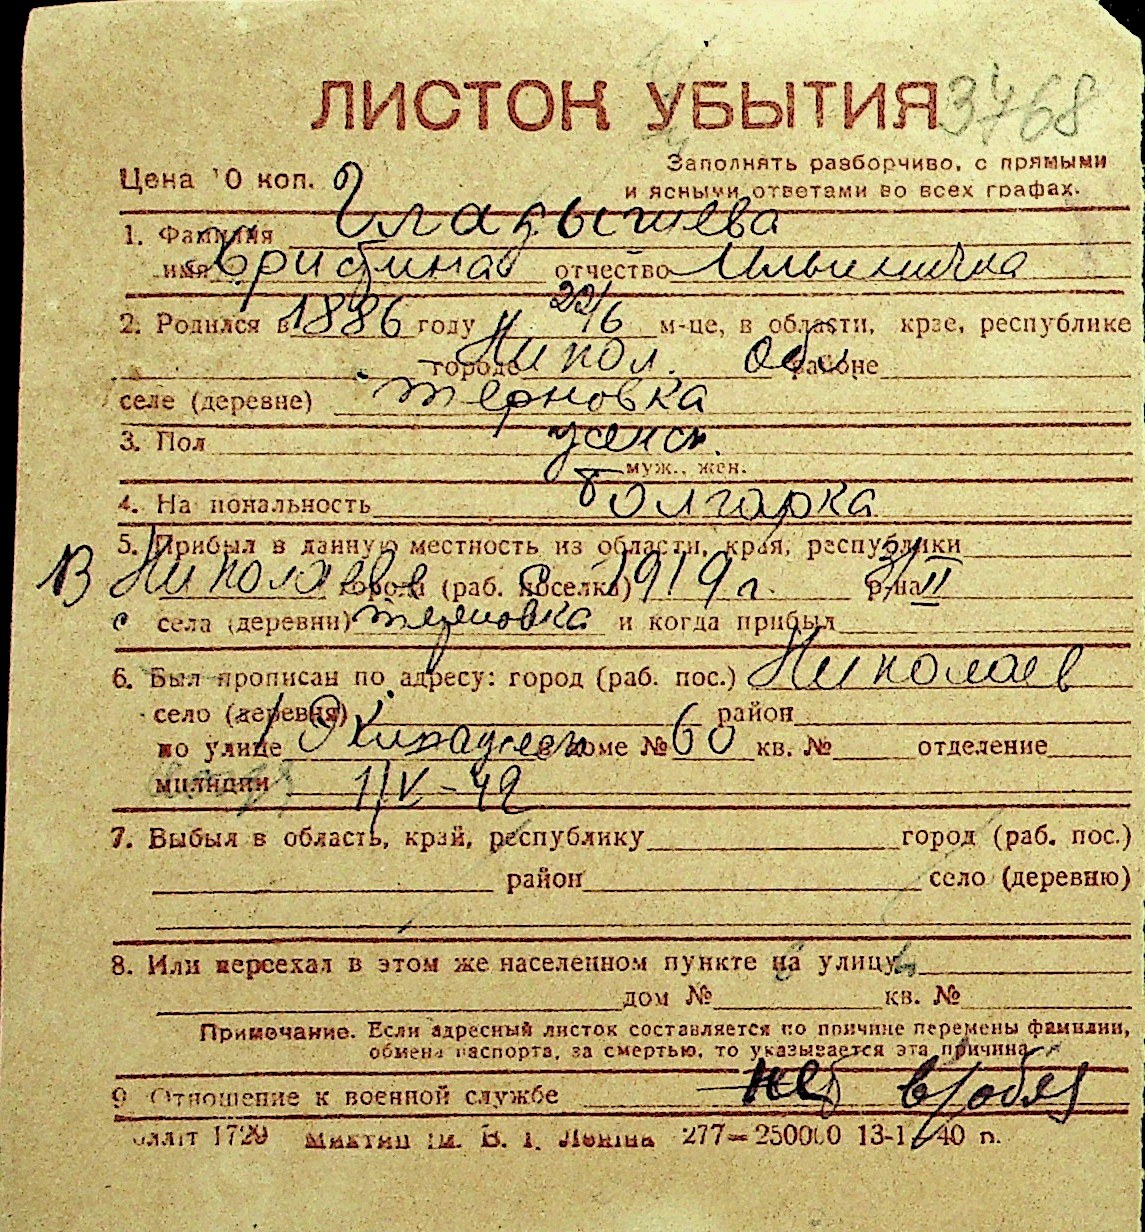 ЛИСТОК УБЫТИЯ 3768
Цена 10 коп.
Заполнять разборчиво, с прямыми
и ясными ответами во всех графах.
1. Фамилия Гладышева
имя Христина отчество Ильинична
2. Родился в 1886 году 22/6 м-це, в области, крае, республике
городе Никол. обл. районе
селе (деревне) терновка
3. Пол женск.
муж., жен.
4. Национальность болгарка
5. Прибыл в данную местность из области, края, республики
В Николаеве города (раб. поселка) с 1919 г. р-на
с села (деревни) терновка и когда прибыл
6. Был прописан по адресу: город (раб. пос.) Николаев
село (деревня) район
по улице в доме № 60 кв. № отделение
милиции 1/V-42
7. Выбыл в область, край, республику город (раб. пос.)
район село (деревню)
8. Или переехал в этом же населенном пункте на улицу
дом № кв. №
Примечание. Если адресный листок составляется по причине перемены фамилии,
обмена паспорта, за смертью, то указывается эта причина
9. Отношение к военной службе нет в/обяз
1729 им. В. И. Ленина 277—250000 13-1 40 г.